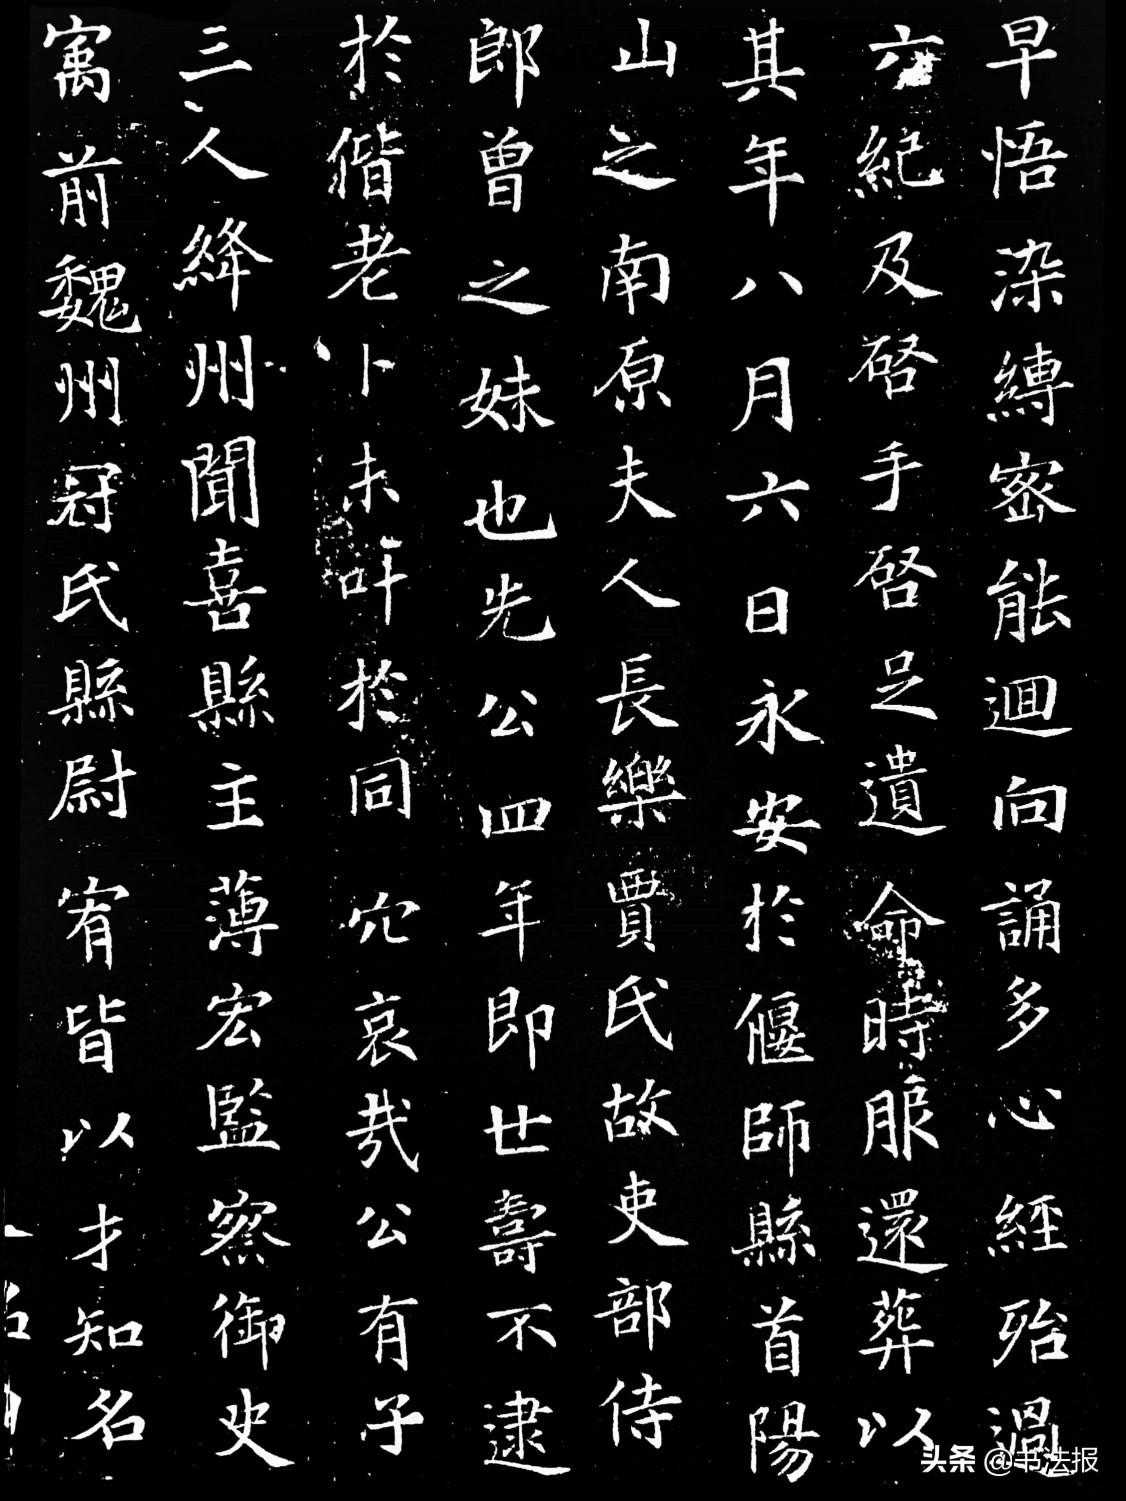 早悟染縛密能迴向誦多心經殆過
六紀及啓手啓足遺命時服還葬以
其年八月六日永安於偃師縣首陽
山之南原夫人長樂賈氏故吏部侍
郎曾之妹也先公四年即世壽不逮
於偕老卜未叶於同穴哀哉公有子
三人絳州聞喜縣主薄宏監察御史
寓前魏州冠氏縣尉宥皆以才知名
头条 @书法报